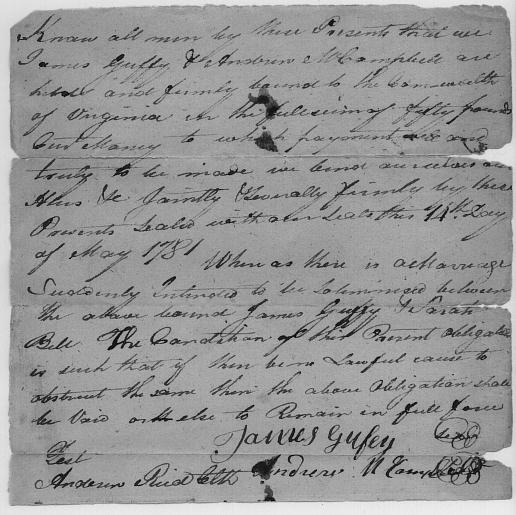 Know all men by these Presents that we
James Guffy & Andrew McCampbell are
held and firmly bound to the Comwealth
of Virginia in the full sum of fifty pounds
Curr Money to which payment well and
truly to be made we bind ourselves our
Heirs &c Jointly & Severally firmly by these
Presents Sealed with our Seals this 14th Day
of May 1781
Whereas there is a Marriage
Suddenly Intended to be Solemnized between
the above bound James Guffy & Sarah
Bell The Condition of this Present Obligation
is such that if there be no Lawful cause to
obstruct the same then the above Obligation shall
be Void or else to Remain in full force
James Gufey Seal
Test
Andrew Reid Clk Andrew McCampbell